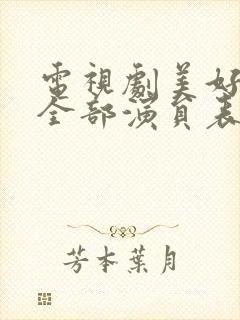 電視劇美好
全部演員表
芳本葉月